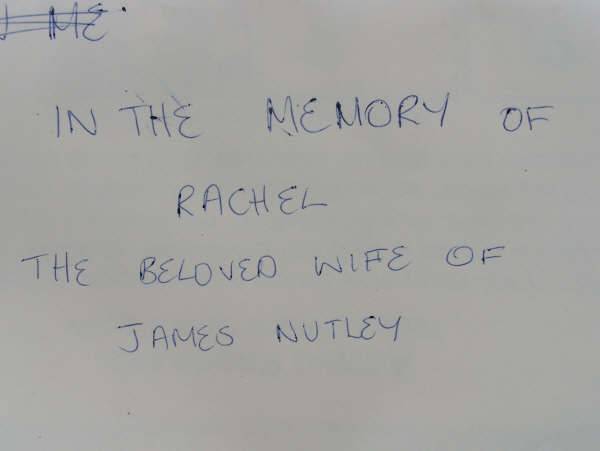 ME
IN THE MEMORY OF
RACHEL
THE BELOVED WIFE OF
JAMES NUTLEY